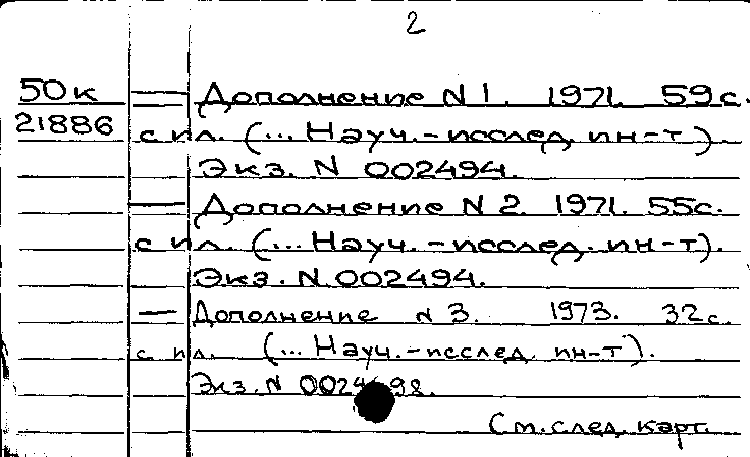 2
50к — Дополнение N 1. 1971. 59с.
21886 с ил. (... Науч.-исслед. ин-т)
Экз. N 002494.
— Дополнение N 2. 1971. 55с.
с ил. (... Науч.-исслед. ин-т).
Экз. N 002494.
— Дополнение N 3. 1973. 32с.
с ил. (... Науч.-исслед. ин-т).
Экз. N
См. след. карт.